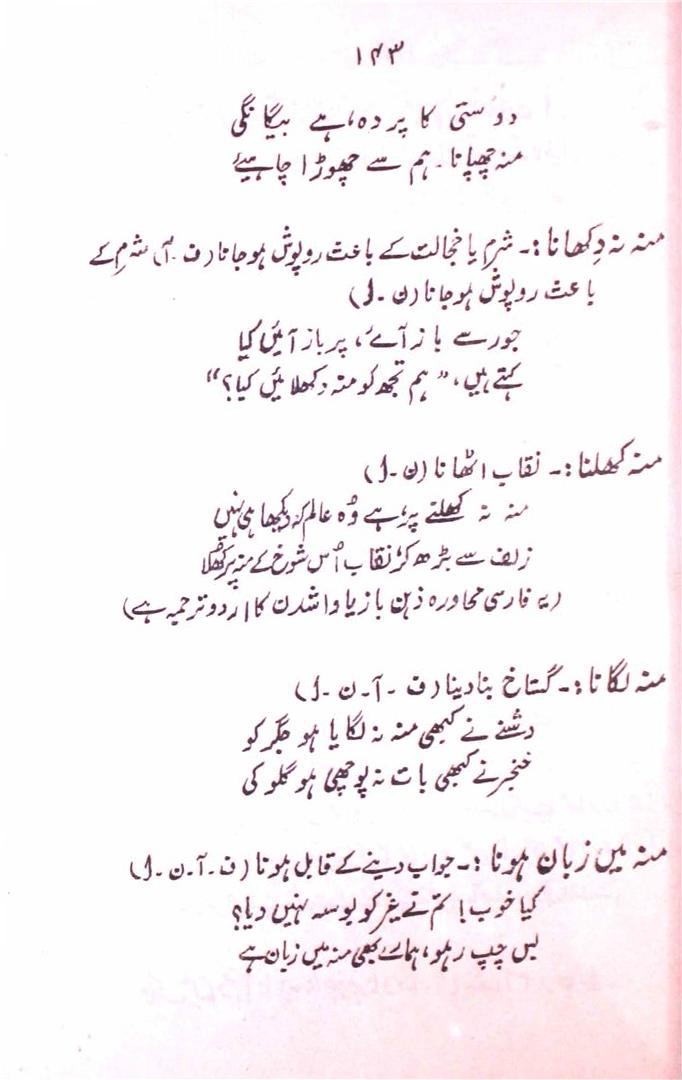 ۱۴۳
دوستی کا پردہ، ہے بیگانگی
منہ چھپانا۔ ہم سے چھوڑا چاہیئے
منہ نہ دِکھانا:۔ شرم یا خجالت کے باعث روپوش ہو جانا (ف۔آ) شرم کے
باعث روپوش ہو جانا (ن۔ل)
جور سے باز آئے، پر باز آئیں کیا
کہتے ہیں، ”ہم تجھ کو منہ دکھلائیں کیا؟“
منہ کھلنا:۔ نقاب اٹھانا (ن۔ل)
منہ نہ کھلنے پر، ہے وُہ عالم کہ دیکھا ہی نہیں
زلف سے بڑھ کر نقاب اُس شوخ کے منہ پر کھُلا
(یہ فارسی محاورہ ذہن باز یا وا شدن کا اردو ترجمہ ہے)
منہ لگانا:۔ گستاخ بنا دینا (ف۔آ۔ن۔ل)
دشنے نے کبھی منہ نہ لگایا ہو جگر کو
خنجر نے کبھی بات نہ پوچھی ہو گلو کی
منہ میں زبان ہونا:۔ جواب دینے کے قابل ہونا (ف۔آ۔ن۔ل)
کیا خوب! تم نے غیر کو بوسہ نہیں دیا؟
بس چپ رہو، ہمارے بھی منہ میں زبان ہے